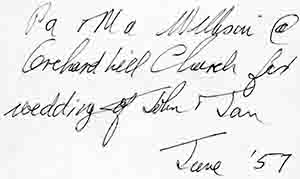 Pa & Ma Willson @
Orchard Hill Church for
wedding of John & Jan
June '57